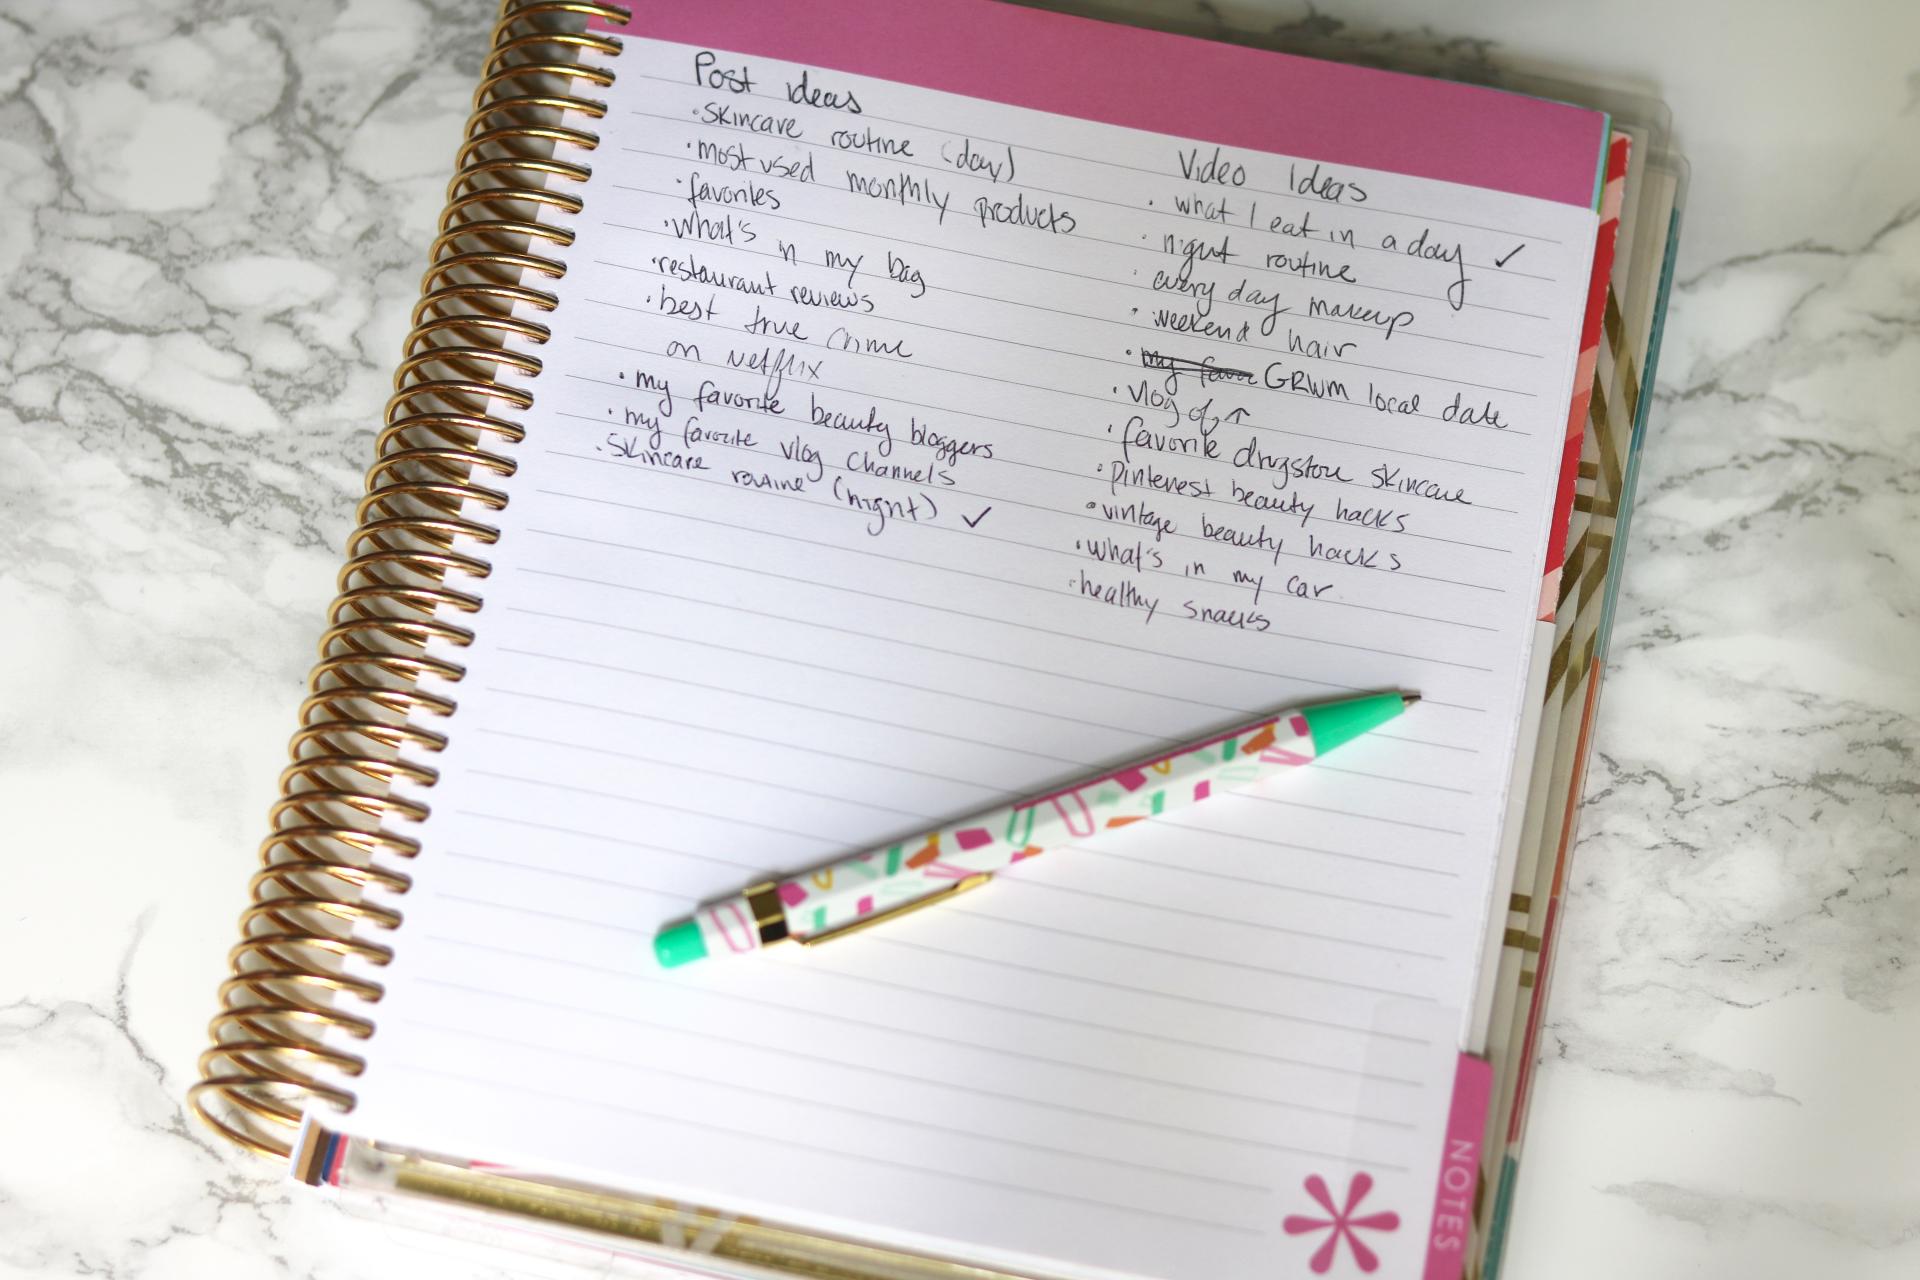 Post ideas
• skincare routine (day)
• most used monthly products
• favorites
• what's in my bag
• restaurant reviews
• best true crime
on netflix
• my favorite beauty bloggers
• my favorite vlog channels
• skincare routine (night) ✓
Video Ideas
• what I eat in a day ✓
• night routine
• every day makeup
• weekend hair
• my favor GRWM local date
• vlog of ↑
• favorite drugstore skincare
• Pinterest beauty hacks
• vintage beauty hacks
• what's in my car
• healthy snacks
NOTES